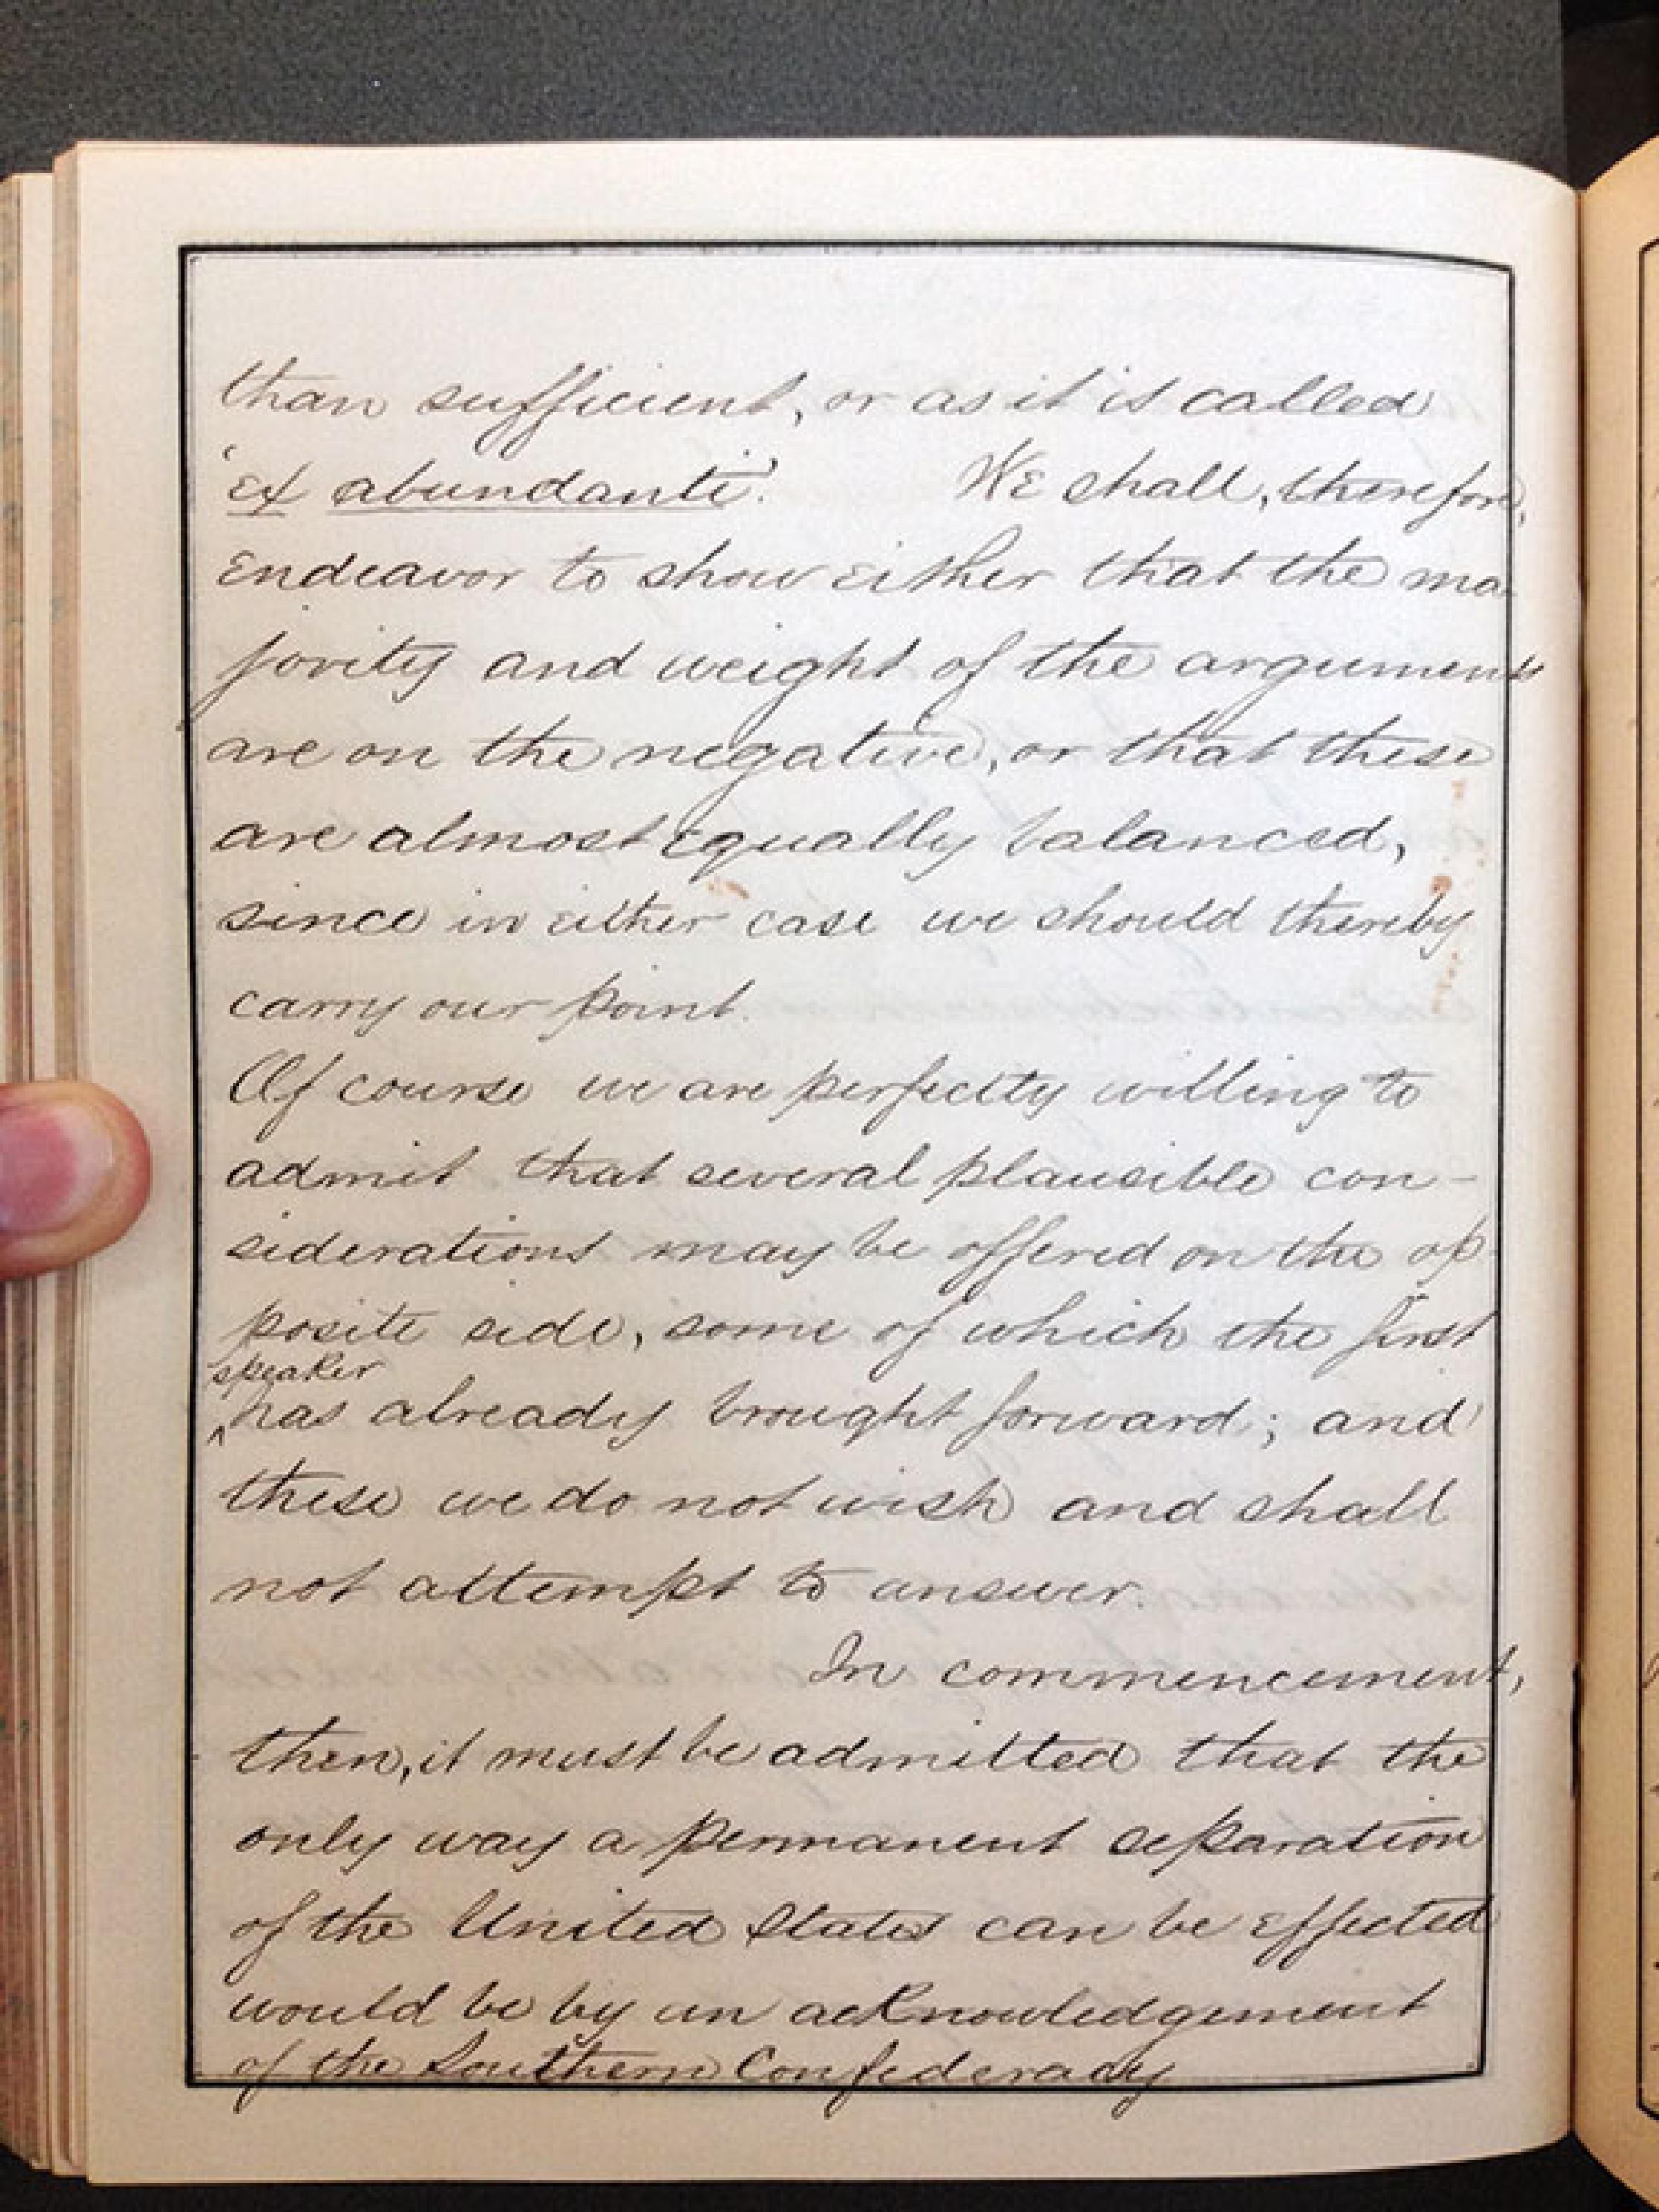 than sufficient, or as it is called
'ex abundanti'. We shall, therefore,
endeavor to show either that the ma-
jority and weight of the arguments
are on the negative, or that these
are almost equally balanced,
since in either case we should thereby
carry our point.
Of course we are perfectly willing to
admit that several plausible con-
siderations may be offered on the op-
posite side, some of which the first
speaker
^has already brought forward; and
these we do not wish and shall
not attempt to answer.
In commencement,
then, it must be admitted that the
only way a permanent separation
of the United States can be effected
would be by an acknowledgement
of the Southern Confederacy